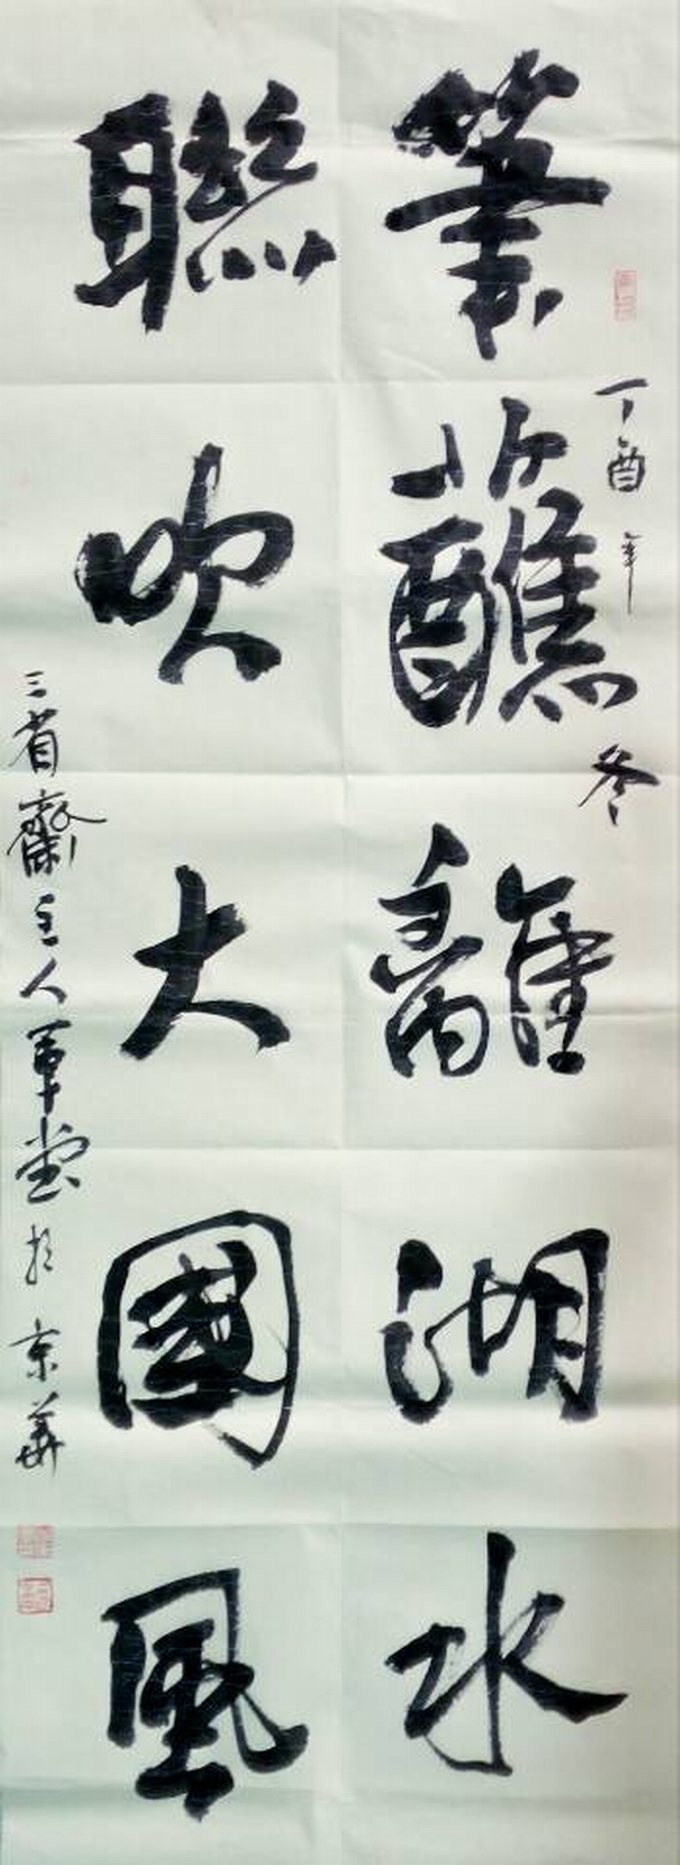 丁酉年冬
筆蘸離湖水
聯吹大國風
三省齋主人堂於京華